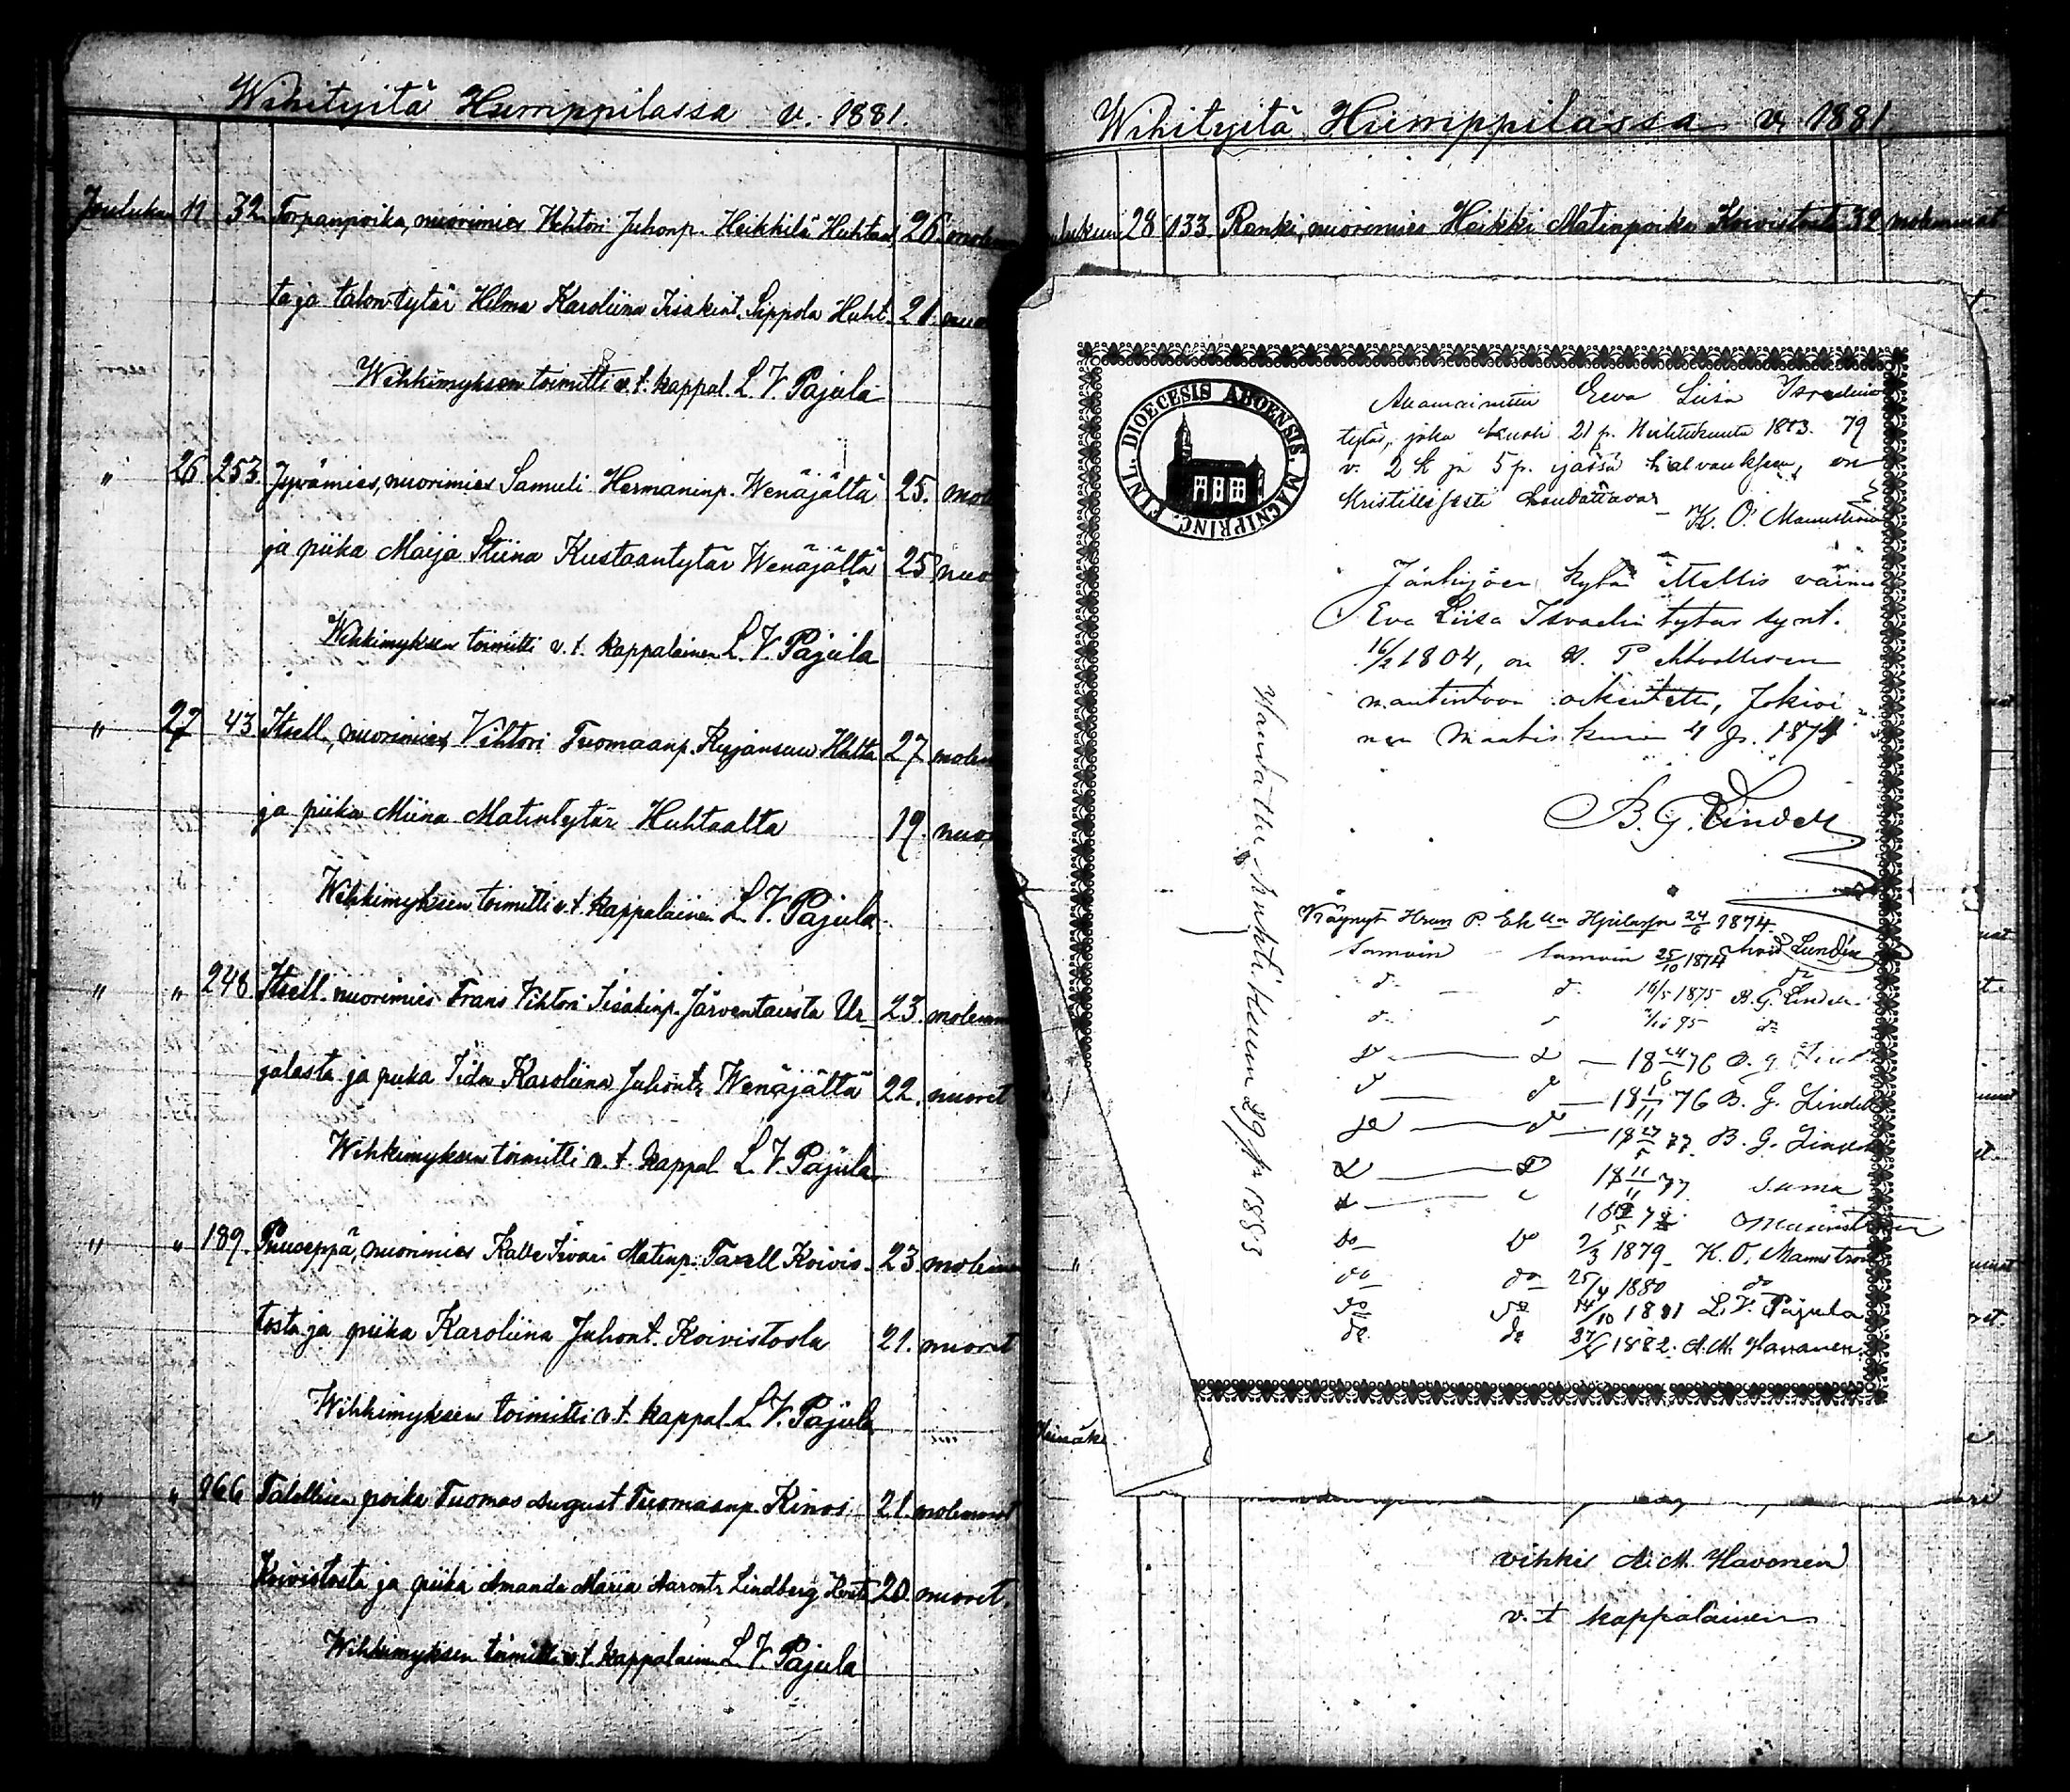 Wihityitä Humppilassa v. 1881.
Jouluku 11 32 Torpanpoika, nuorimies Vihtori Juhonp. Heikkilä Huhtaa 26. molem
ta ja talon tytär Hilma Karoliina Iisakint. Sippola Huht. 21. nuo
Wihkimyksen toimitti v. t. kappal. L. V. Pajula
" 26 253 Jyvämies, nuorimies Samuli Hermaninp. Wenäjältä 25. mol
ja piika Maija Stiina Kustaantytär Wenäjältä 25 nuo
Wihkimyksen toimitti v. t. kappalainen L. V. Pajula
" 27 43 Itsell., nuorimies Vihtori Tuomaanp. Kujansuu Huhta 27 molem
ja piika Miina Matintytär Huhtaalta 19. nuor
Wihkimyksen toimitti v. t. kappalainen L. V. Pajula
" " 248 Itsell. nuorimies Frans Vihtori Iisakinp. Järventausta Ur 23. molemm
jalasta ja piika Iida Karoliina Juhont. Wenäjältä 22. nuoret
Wihkimyksen toimitti v. t. kappal L. V. Pajula
" " 189. Puuseppä, nuorimies Kalle Iivari Matinp. Taxell Koivis 23. molemm
tosta ja piika Karoliina Juhont. Koivistosta 21. nuoret
Wihkimyksen toimitti v. t. kappal. L. V. Pajula
" " 266 Talollisen poika Tuomas August Tuomaanp. Kinos 21. molemmat
Koivistosta ja piika Amanda Maria Aaront. Lindberg 20. nuoret.
Wihkimyksen toimitti v. t. kappalainen L. V. Pajula
Wihityitä Humppilassa v. 1881
lukuun 28 133. Renki, nuorimies Heikki Matinpoika Koivistosta 32 molemmat
FINL. DIOECESIS ABOENSIS. MAGNIPRINC.
Eeva Liisa Israelin
tytär, joka kuoli 21 p. Huhtikuuta 1883. 79
v. 2 k ja 5 p. ijässä, on
Kristillisesti haudattava
K. O. Mannström
Jänhijoen kylän Mellis vaimo
Eva Liisa Israelin tytär synt.
16/2 1804, on H. P.
nautintoon oikeutettu, Jokioi
nen Maaliskuun 4 p. 1874
B. G. Lindell
Haudattu huhtikuun 29 p. 1883
Käynyt H. P. Eh. 24/5 1874. Lundén
Samoin Samoin 25/10 1874 do
d. d. 16/5 1875 B. G. Lindell
d d 75 do
d d 18 24/6 76 B. G. Lind
d d 18 1/11 76 B. G. Lindell
d d 18 27/5 77 B. G. Lindell
d d 18 11/11 77 sama
do do 2/3 1879 K. O. Mannström
do do 25/4 1880 do
do do 14/10 1881 L. V. Pajula
do do 1882. A. M. Havonen
Heinäk
vihki A. M. Havonen
v. t kappalainen